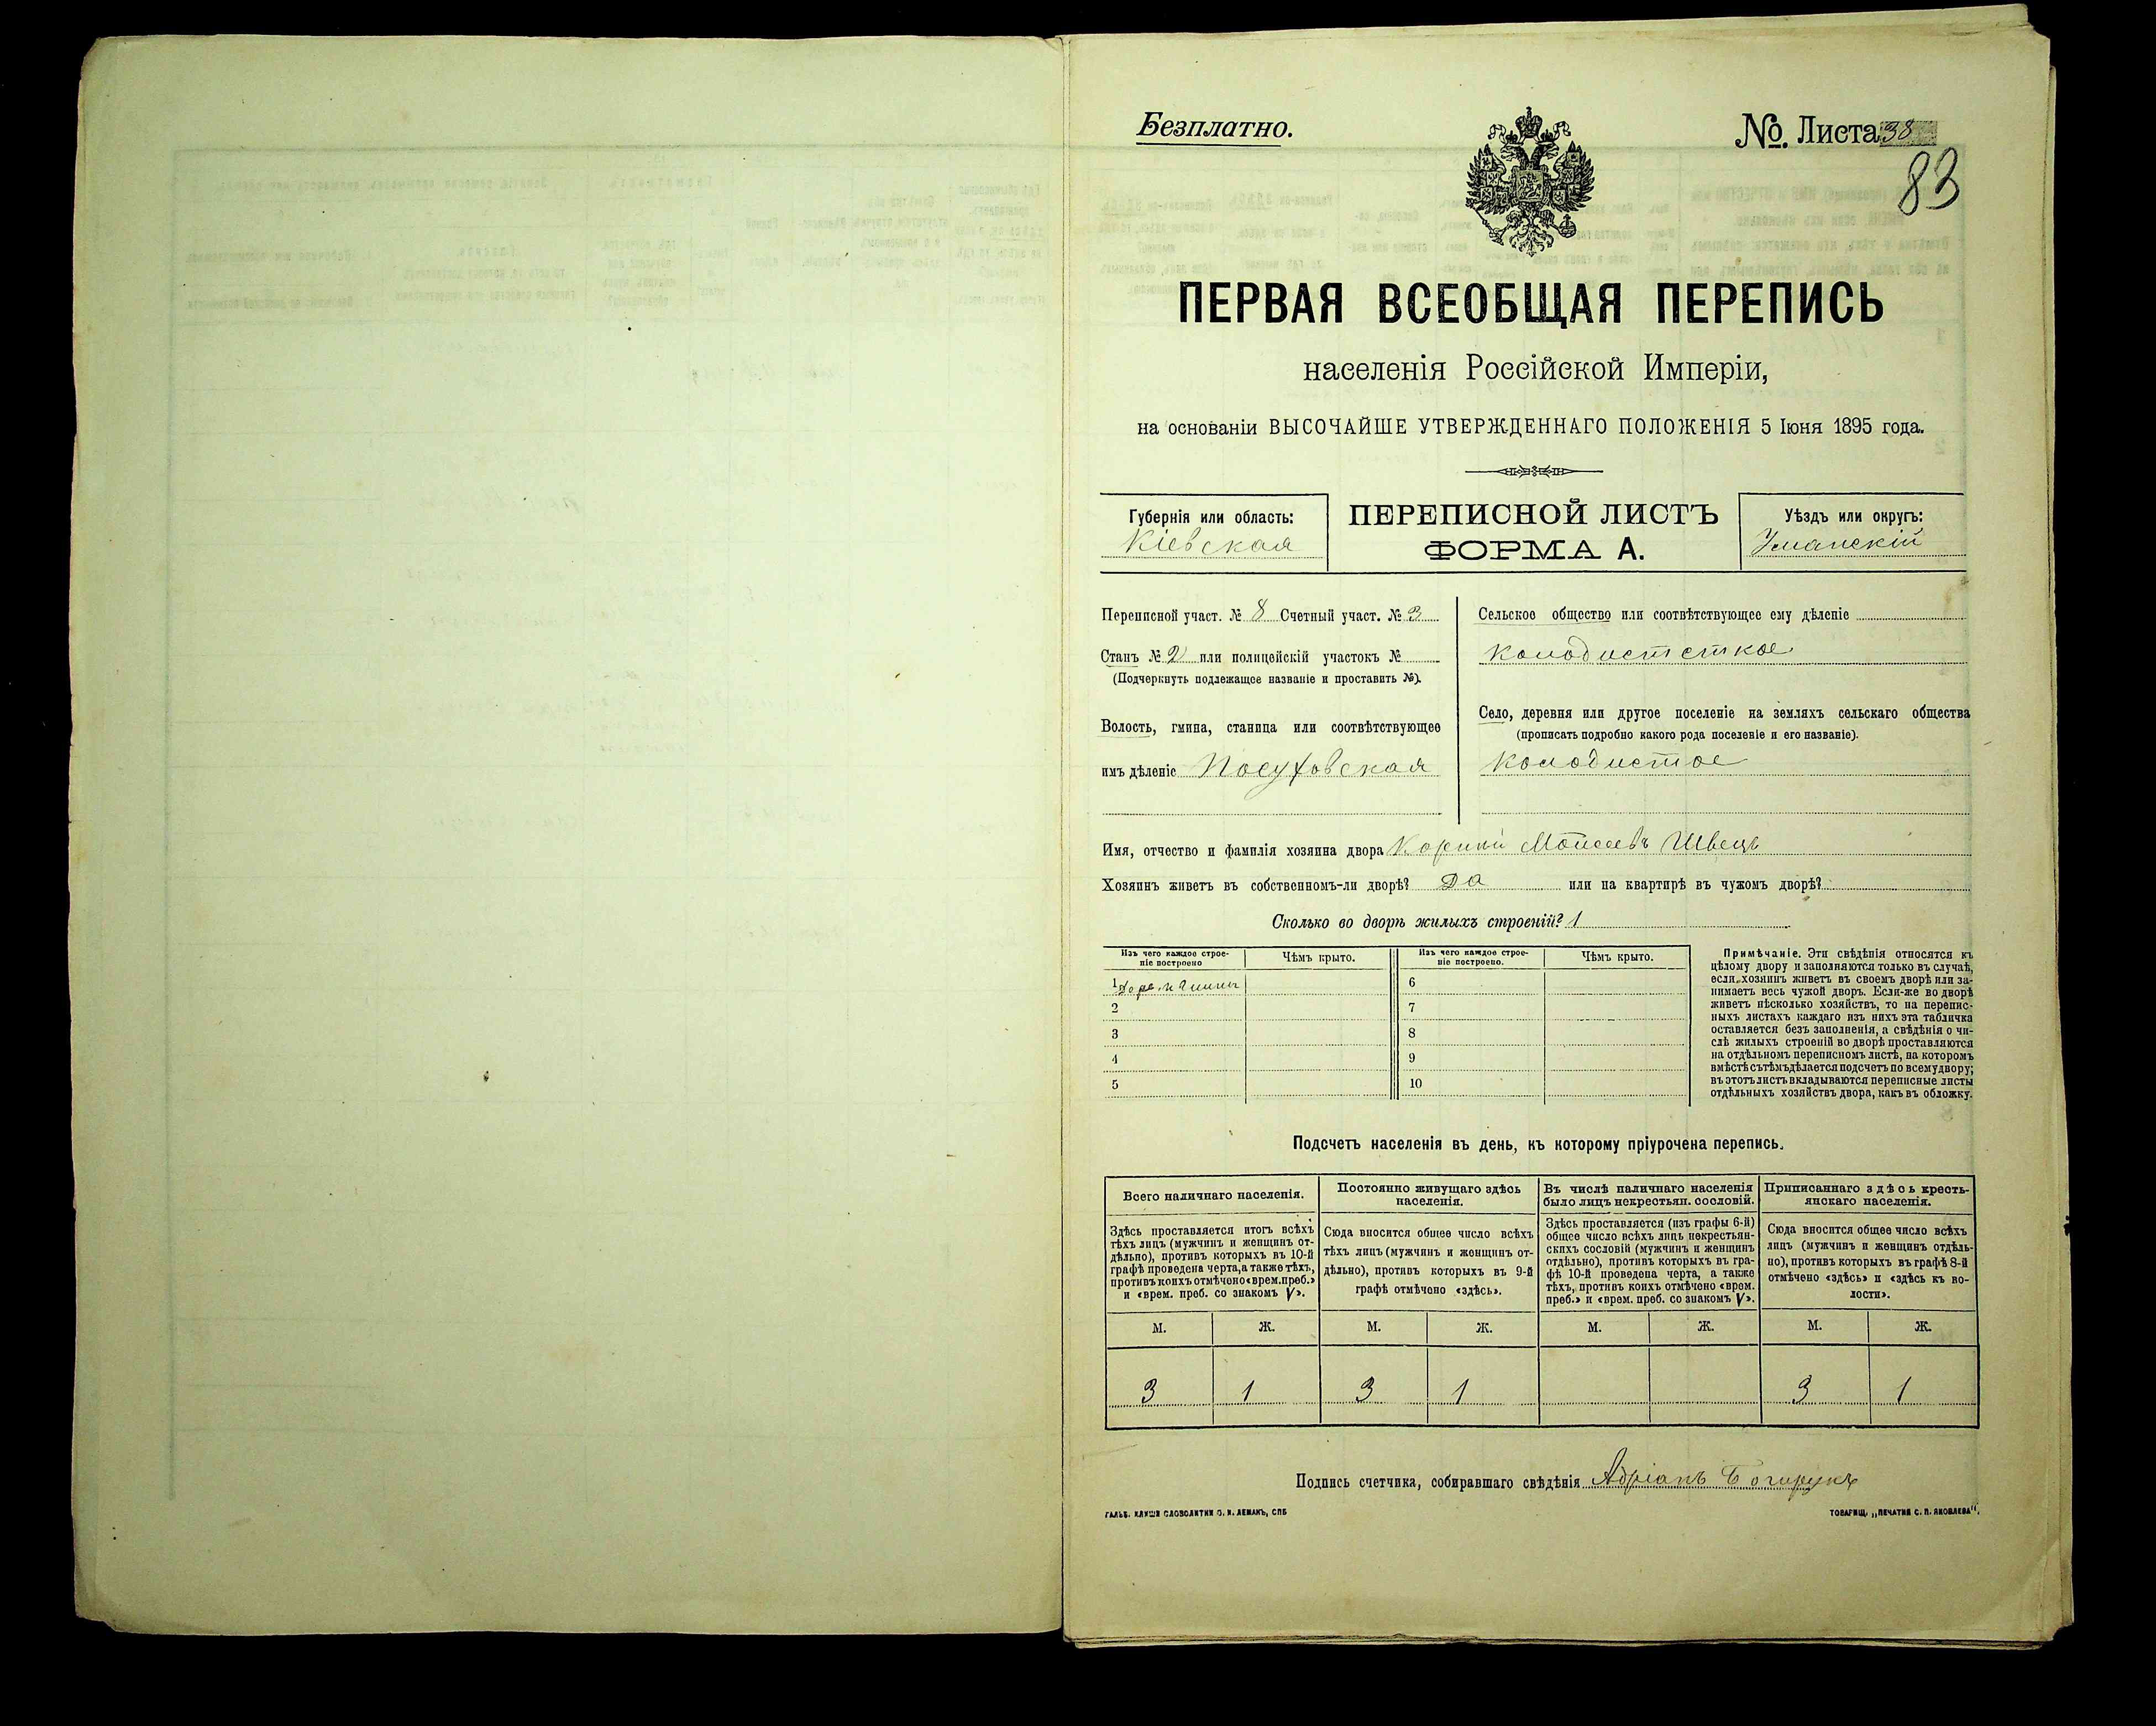 Безплатно.
№ Листа 38
83
ПЕРВАЯ ВСЕОБЩАЯ ПЕРЕПИСЬ
населенія Россійской Имперіи,
на основаніи ВЫСОЧАЙШЕ УТВЕРЖДЕННАГО ПОЛОЖЕНІЯ 5 Іюня 1895 года.
Губернія или область:
Кіевская
ПЕРЕПИСНОЙ ЛИСТЪ
ФОРМА А.
Уѣздъ или округъ:
Уманскій
Переписной участ. № 8 Счетный участ. № 3
Станъ № 2 или полицейскій участокъ №
(Подчеркнуть подлежащее названіе и проставить №).
Волость, гмина, станица или соотвѣтствующее
имъ дѣленіе Посуховская
Сельское общество или соотвѣтствующее ему дѣленіе
Колодистсткое
Село, деревня или другое поселеніе на земляхъ сельскаго общества
(прописать подробно какого рода поселеніе и его названіе).
Колодистое
Имя, отчество и фамилія хозяина двора Моисеевъ Швецъ
Хозяинъ живетъ въ собственномъ-ли дворѣ? Да или на квартирѣ въ чужомъ дворѣ?
Сколько во дворѣ жилыхъ строеній? 1
Изъ чего каждое строе-
ніе построено
Чѣмъ крыто.
Изъ чего каждое строе-
ніе построено.
Чѣмъ крыто.
1
6
2
7
3
8
4
9
5
10
Примѣчаніе. Эти свѣдѣнія относятся къ
цѣлому двору и заполняются только въ случаѣ,
если хозяинъ живетъ въ своемъ дворѣ или за-
нимаетъ весь чужой дворъ. Если-же во дворѣ
живетъ нѣсколько хозяйствъ, то на перепис-
ныхъ листахъ каждаго изъ нихъ эта табличка
оставляется безъ заполненія, а свѣдѣнія о чи-
слѣ жилыхъ строеній во дворѣ проставляются
на отдѣльномъ переписномъ листѣ, на которомъ
вмѣстѣ съ тѣмъ дѣлается подсчетъ по всему двору;
въ этотъ листъ вкладываются переписные листы
отдѣльныхъ хозяйствъ двора, какъ въ обложку.
Подсчетъ населенія въ день, къ которому пріурочена перепись.
Всего наличнаго населенія.
Здѣсь проставляется итогъ всѣхъ
тѣхъ лицъ (мужчинъ и женщинъ от-
дѣльно), противъ которыхъ въ 10-й
графѣ проведена черта, а также тѣхъ,
противъ коихъ отмѣчено «врем. преб.»
и «врем. преб. со знакомъ V».
Постоянно живущаго здѣсь
населенія.
Сюда вносится общее число всѣхъ
тѣхъ лицъ (мужчинъ и женщинъ от-
дѣльно), противъ которыхъ въ 9-й
графѣ отмѣчено «здѣсь».
Въ числѣ наличнаго населенія
было лицъ некрестьян. сословій.
Здѣсь проставляется (изъ графы 6-й)
общее число всѣхъ лицъ некрестьян-
скихъ сословій (мужчинъ и женщинъ
отдѣльно), противъ которыхъ въ гра-
фѣ 10-й проведена черта, а также
тѣхъ, противъ коихъ отмѣчено «врем.
преб.» и «врем. преб. со знакомъ V».
Приписаннаго здѣсь кресть-
янскаго населенія.
Сюда вносится общее число всѣхъ
лицъ (мужчинъ и женщинъ отдѣль-
но), противъ которыхъ въ графѣ 8-й
отмѣчено «здѣсь» и «здѣсь къ во-
лости».
М. Ж. М. Ж. М. Ж. М. Ж.
3 1 3 1 3 1
Подпись счетчика, собиравшаго свѣдѣнія Адріанъ
ГАЛЬВ. КЛИШЕ СЛОВОЛИТНИ О. И. ЛЕМАНЪ, СПБ
ТОВАРИЩ. „ПЕЧАТНЯ С. П. ЯКОВЛЕВА".